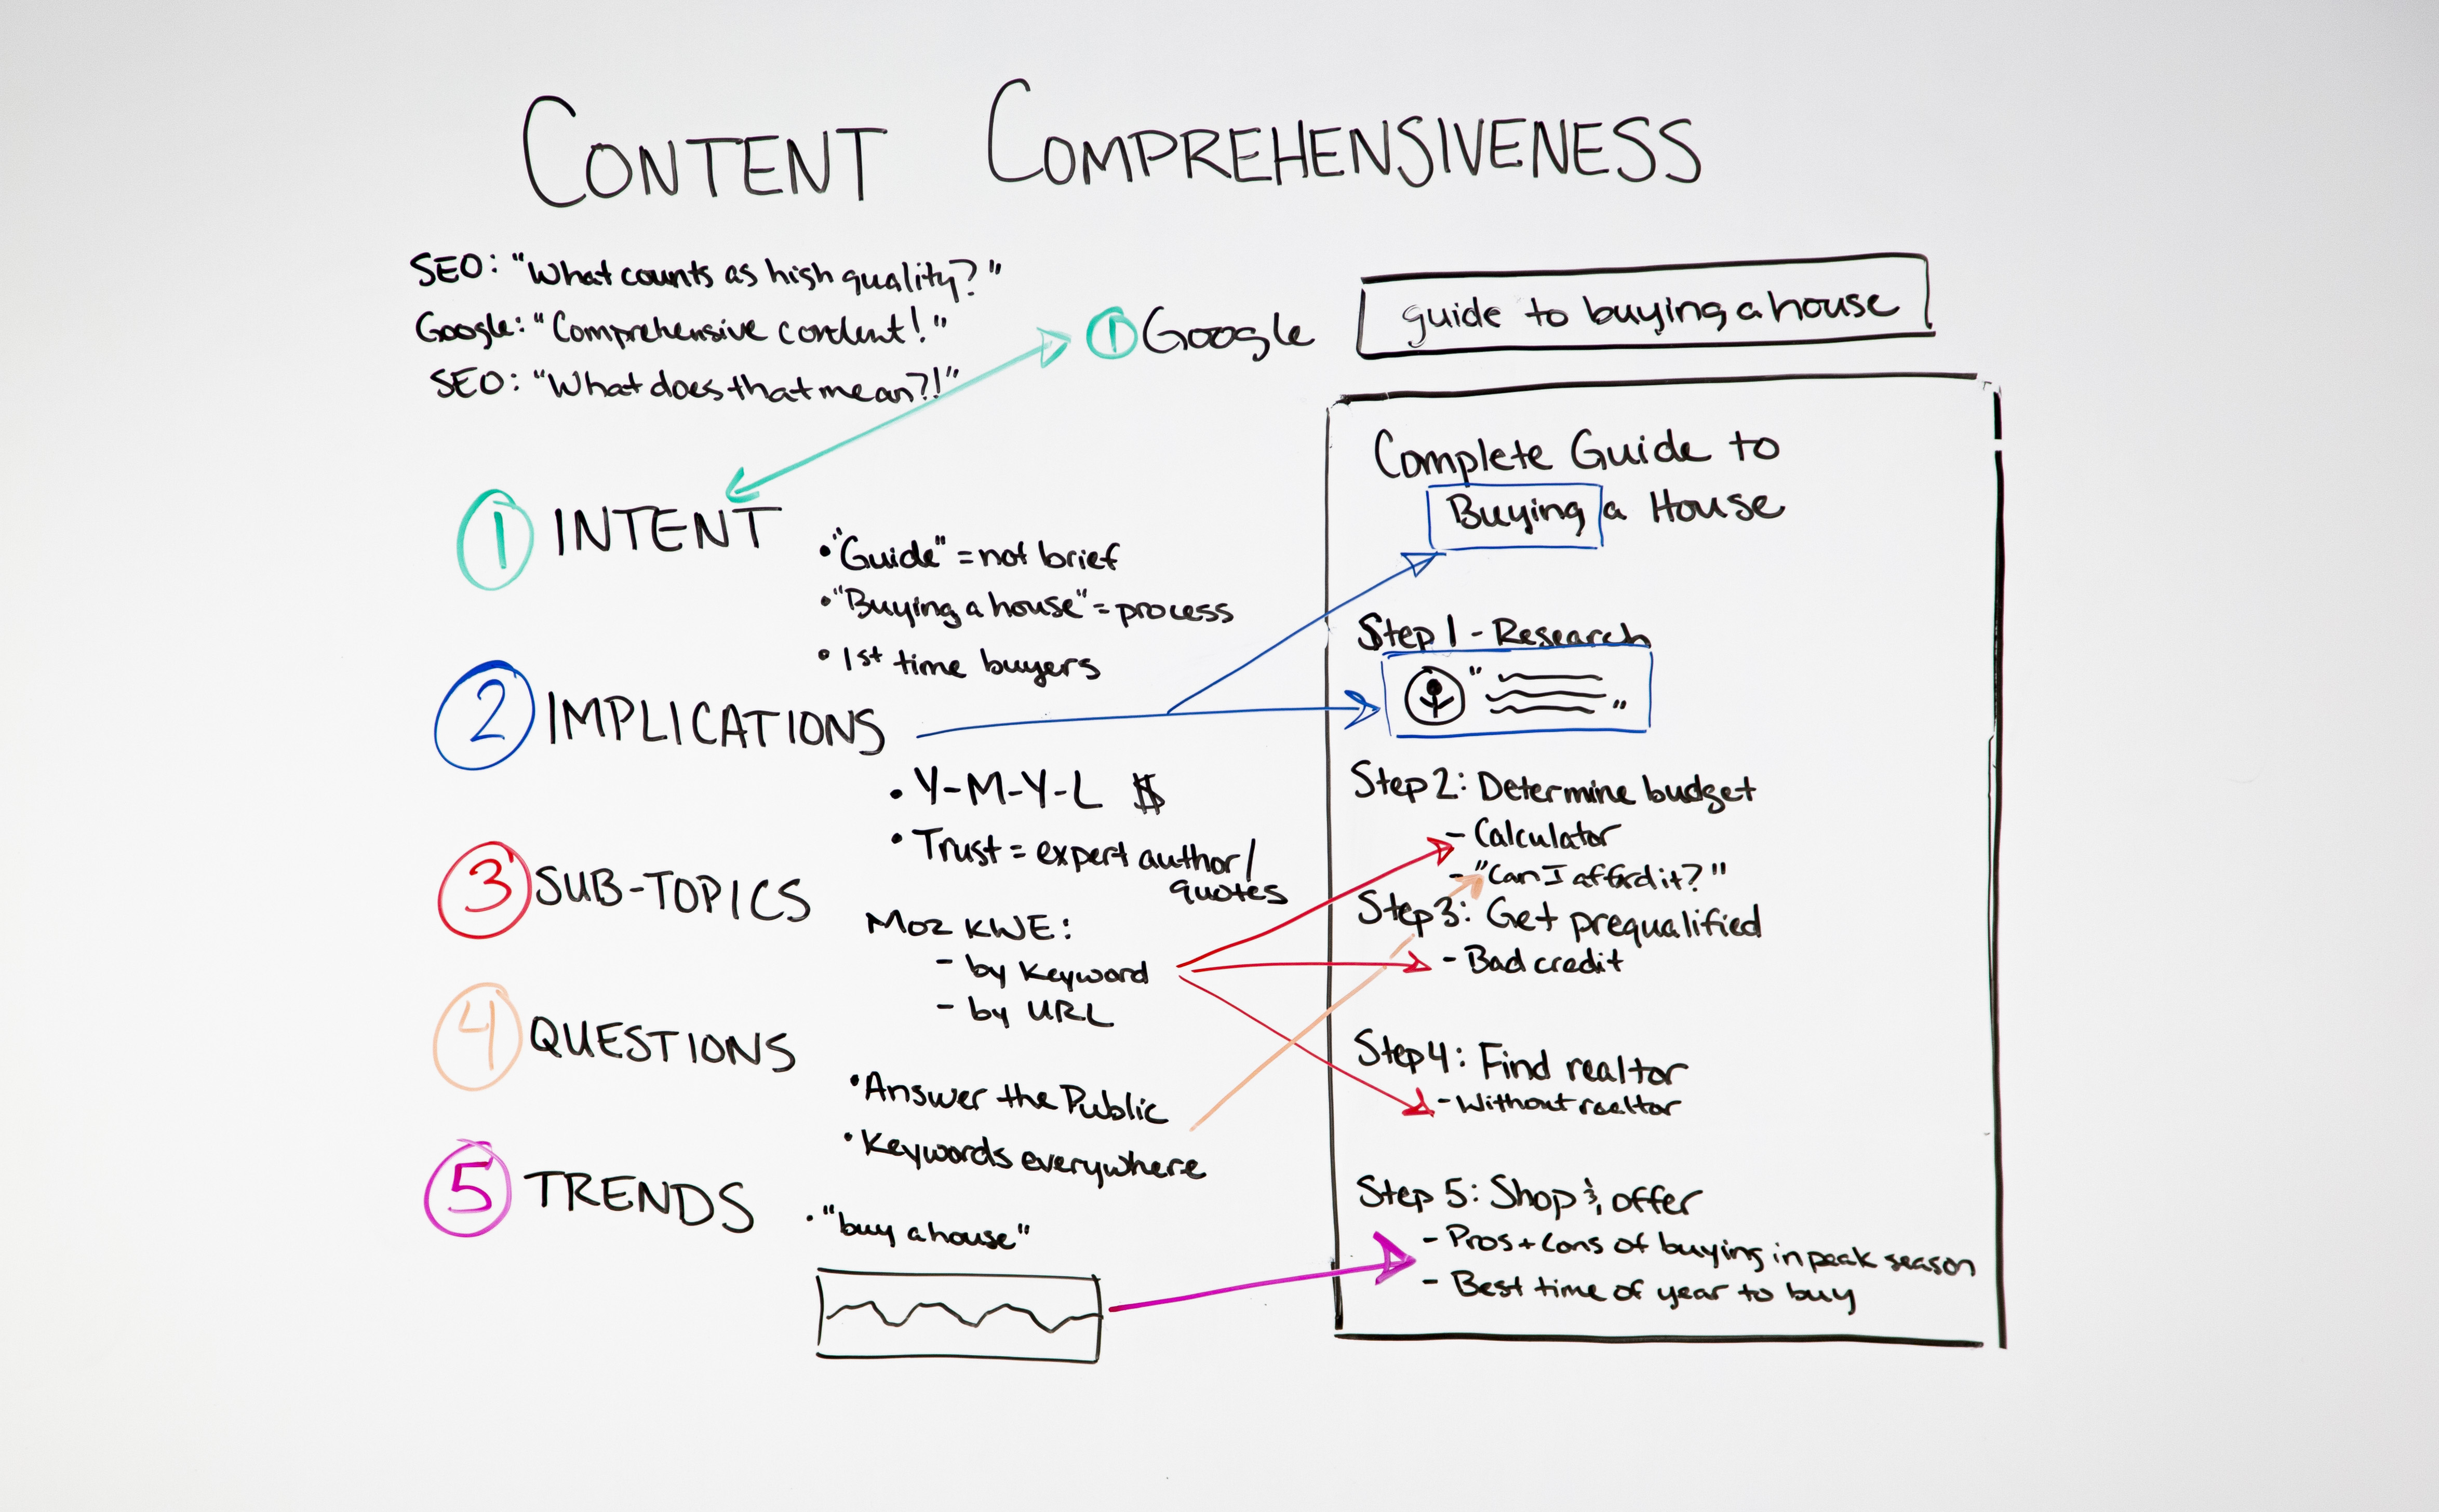 CONTENT COMPREHENSIVENESS
SEO: "What counts as high quality?"
Google: "Comprehensive content!"
SEO: "What does that mean?!"
① INTENT
• "Guide" = not brief
• "Buying a house" = process
• 1st time buyers
② IMPLICATIONS
• Y-M-Y-L $
• Trust = expert author/
quotes
③ SUB-TOPICS
Moz KWE:
- by Keyword
- by URL
④ QUESTIONS
• Answer the Public
• Keywords everywhere
⑤ TRENDS
• "buy a house"
① Google
guide to buying a house
Complete Guide to
Buying a House
Step 1 - Research
" "
Step 2: Determine budget
- Calculator
- "Can I afford it?"
Step 3: Get prequalified
- Bad credit
Step 4: Find realtor
- Without realtor
Step 5: Shop & offer
- Pros + Cons of buying in peak season
- Best time of year to buy